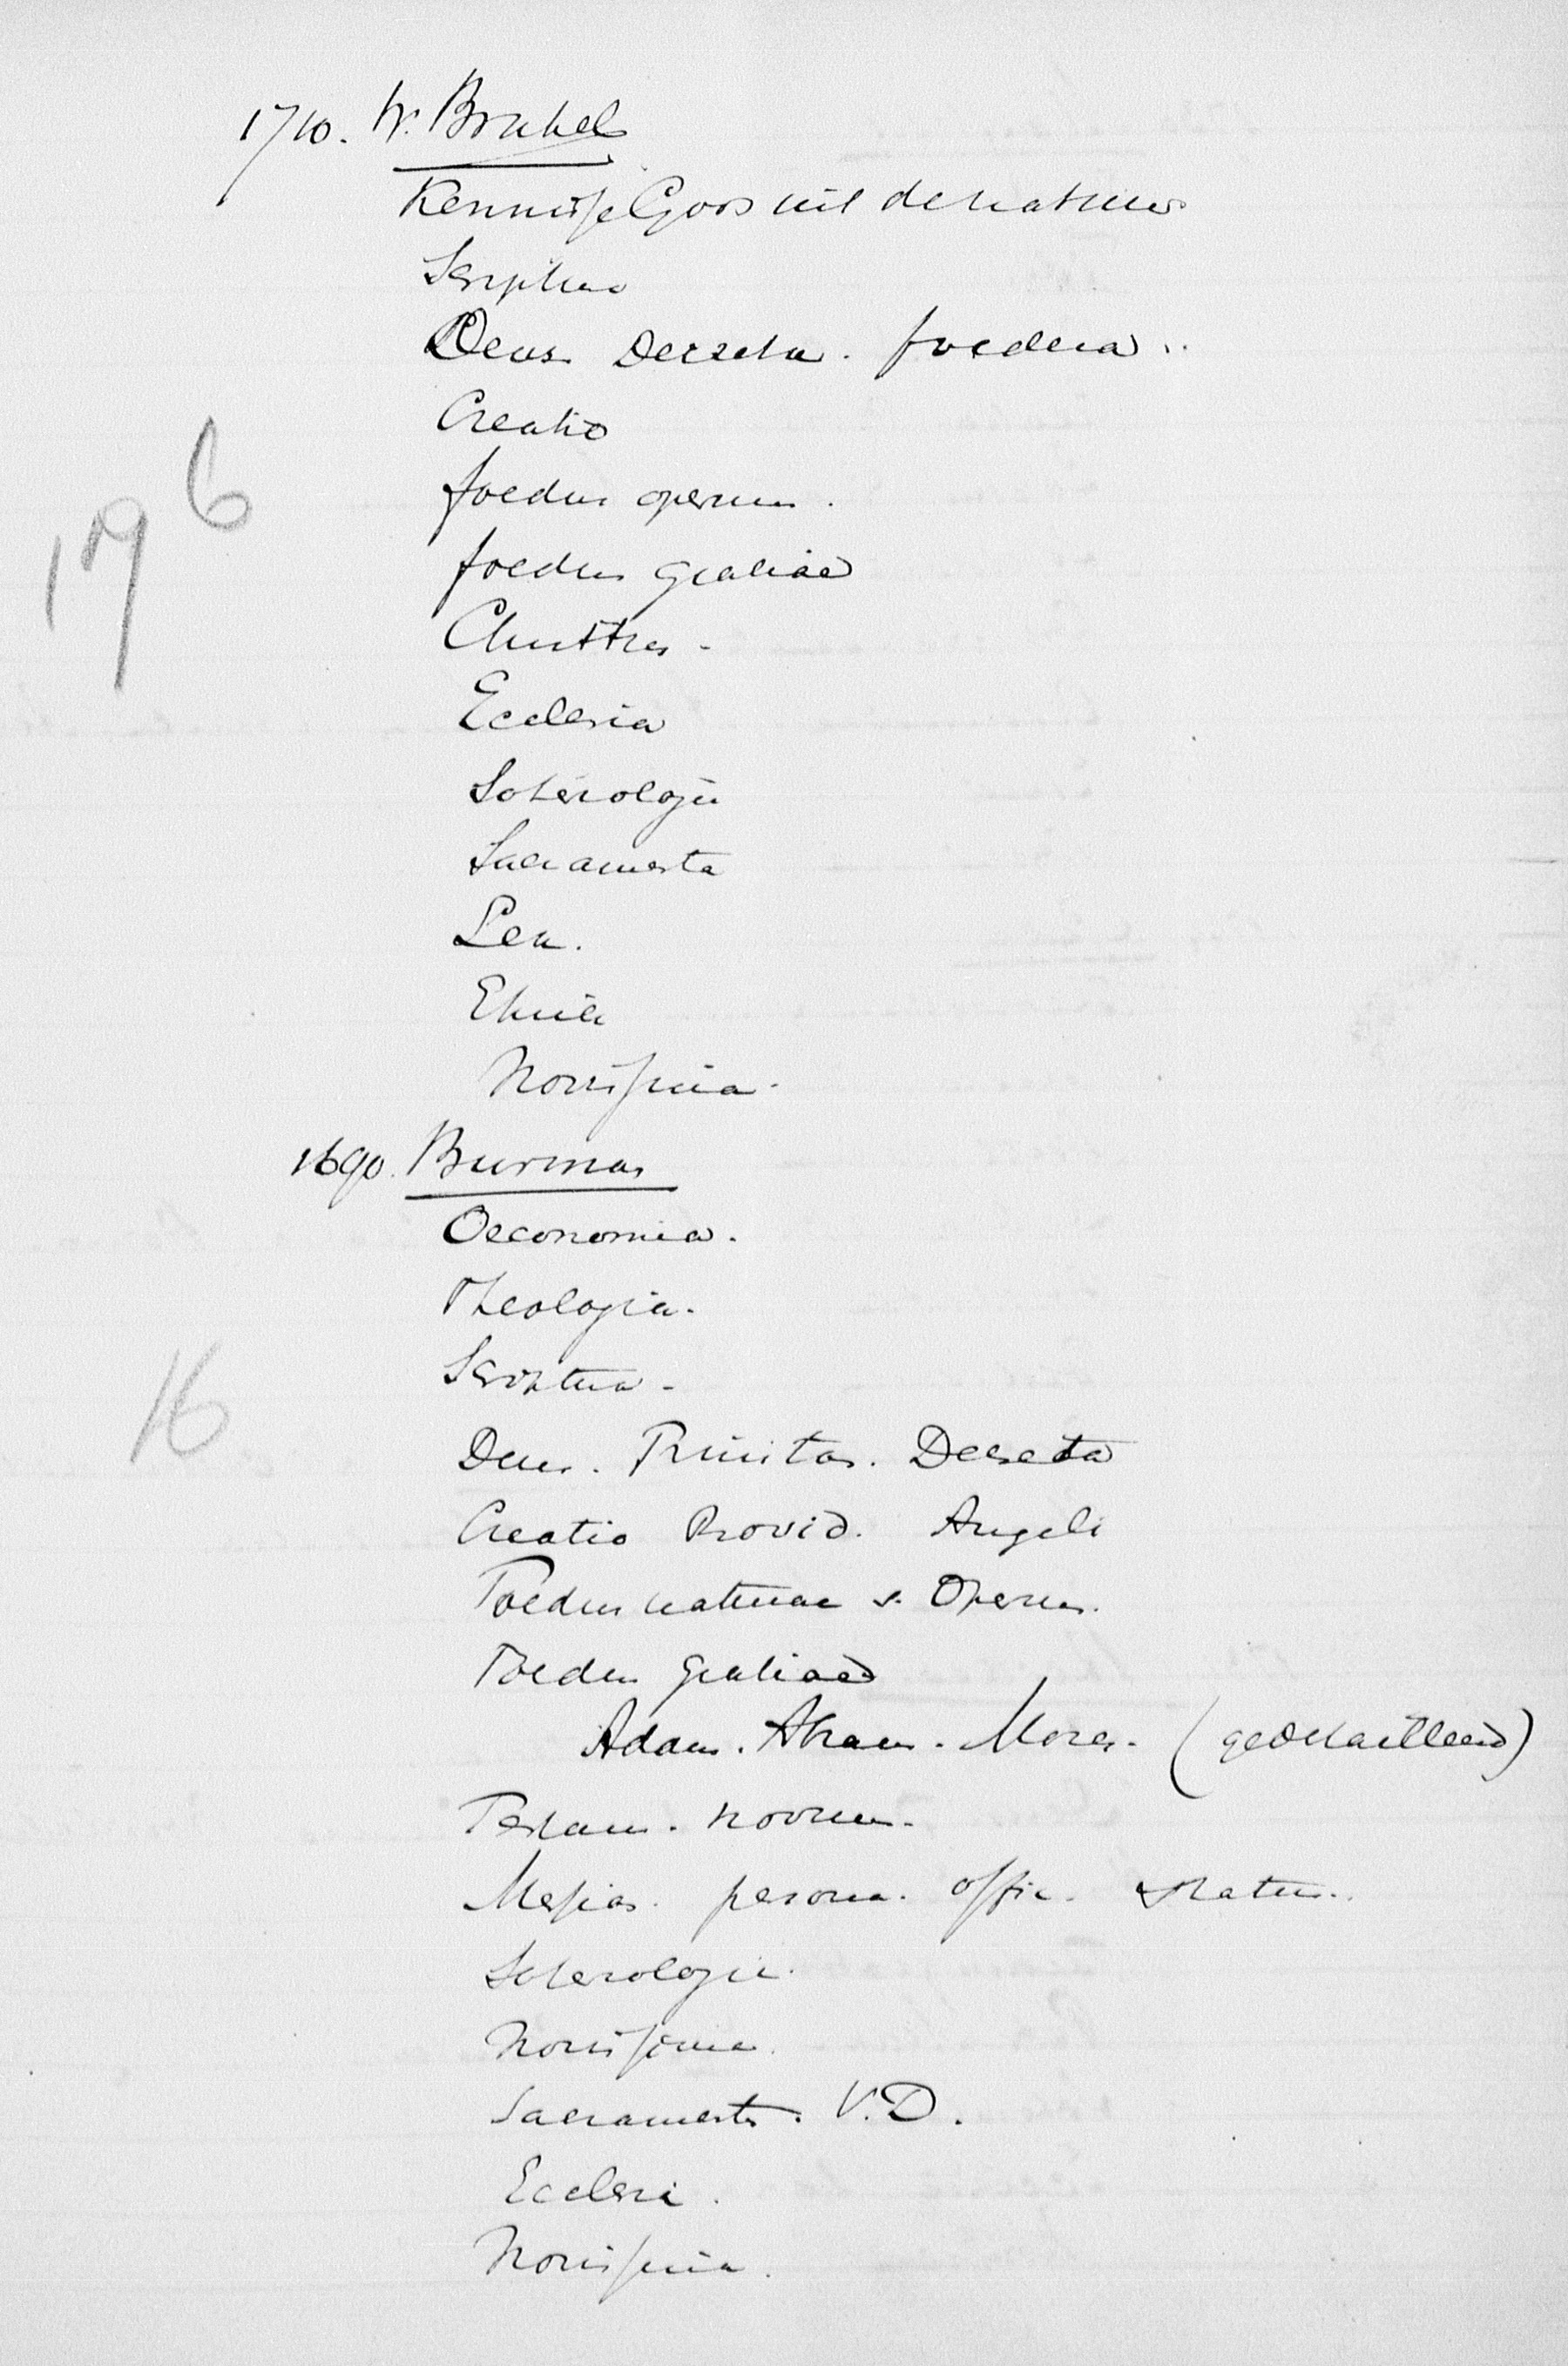 1710. W. Brakel
Kennisse Gods uit de natuur
Scriptura
Deus Decreta. foedera..
Creatio
176
foedus operum.
foedus gratiae
Christus -
Ecclesia
Soteriologie
Sacramenta
Lex.
Ethiek
Novissima.
1690. Burman
Oeconomia.
Theologia.
Scriptura -
16
Deus. Trinitas. Decreta
Creatio Provid. Angeli
Foedus naturae s. Operum.
Foedus gratiae
Adam. Abram. Mozes. (gedetailleerd)
Testam. novum.
Messias. persona. offic. status..
Soterologie.
Novissima.
Sacramenta. V.D.
Ecclesia.
Novissima.